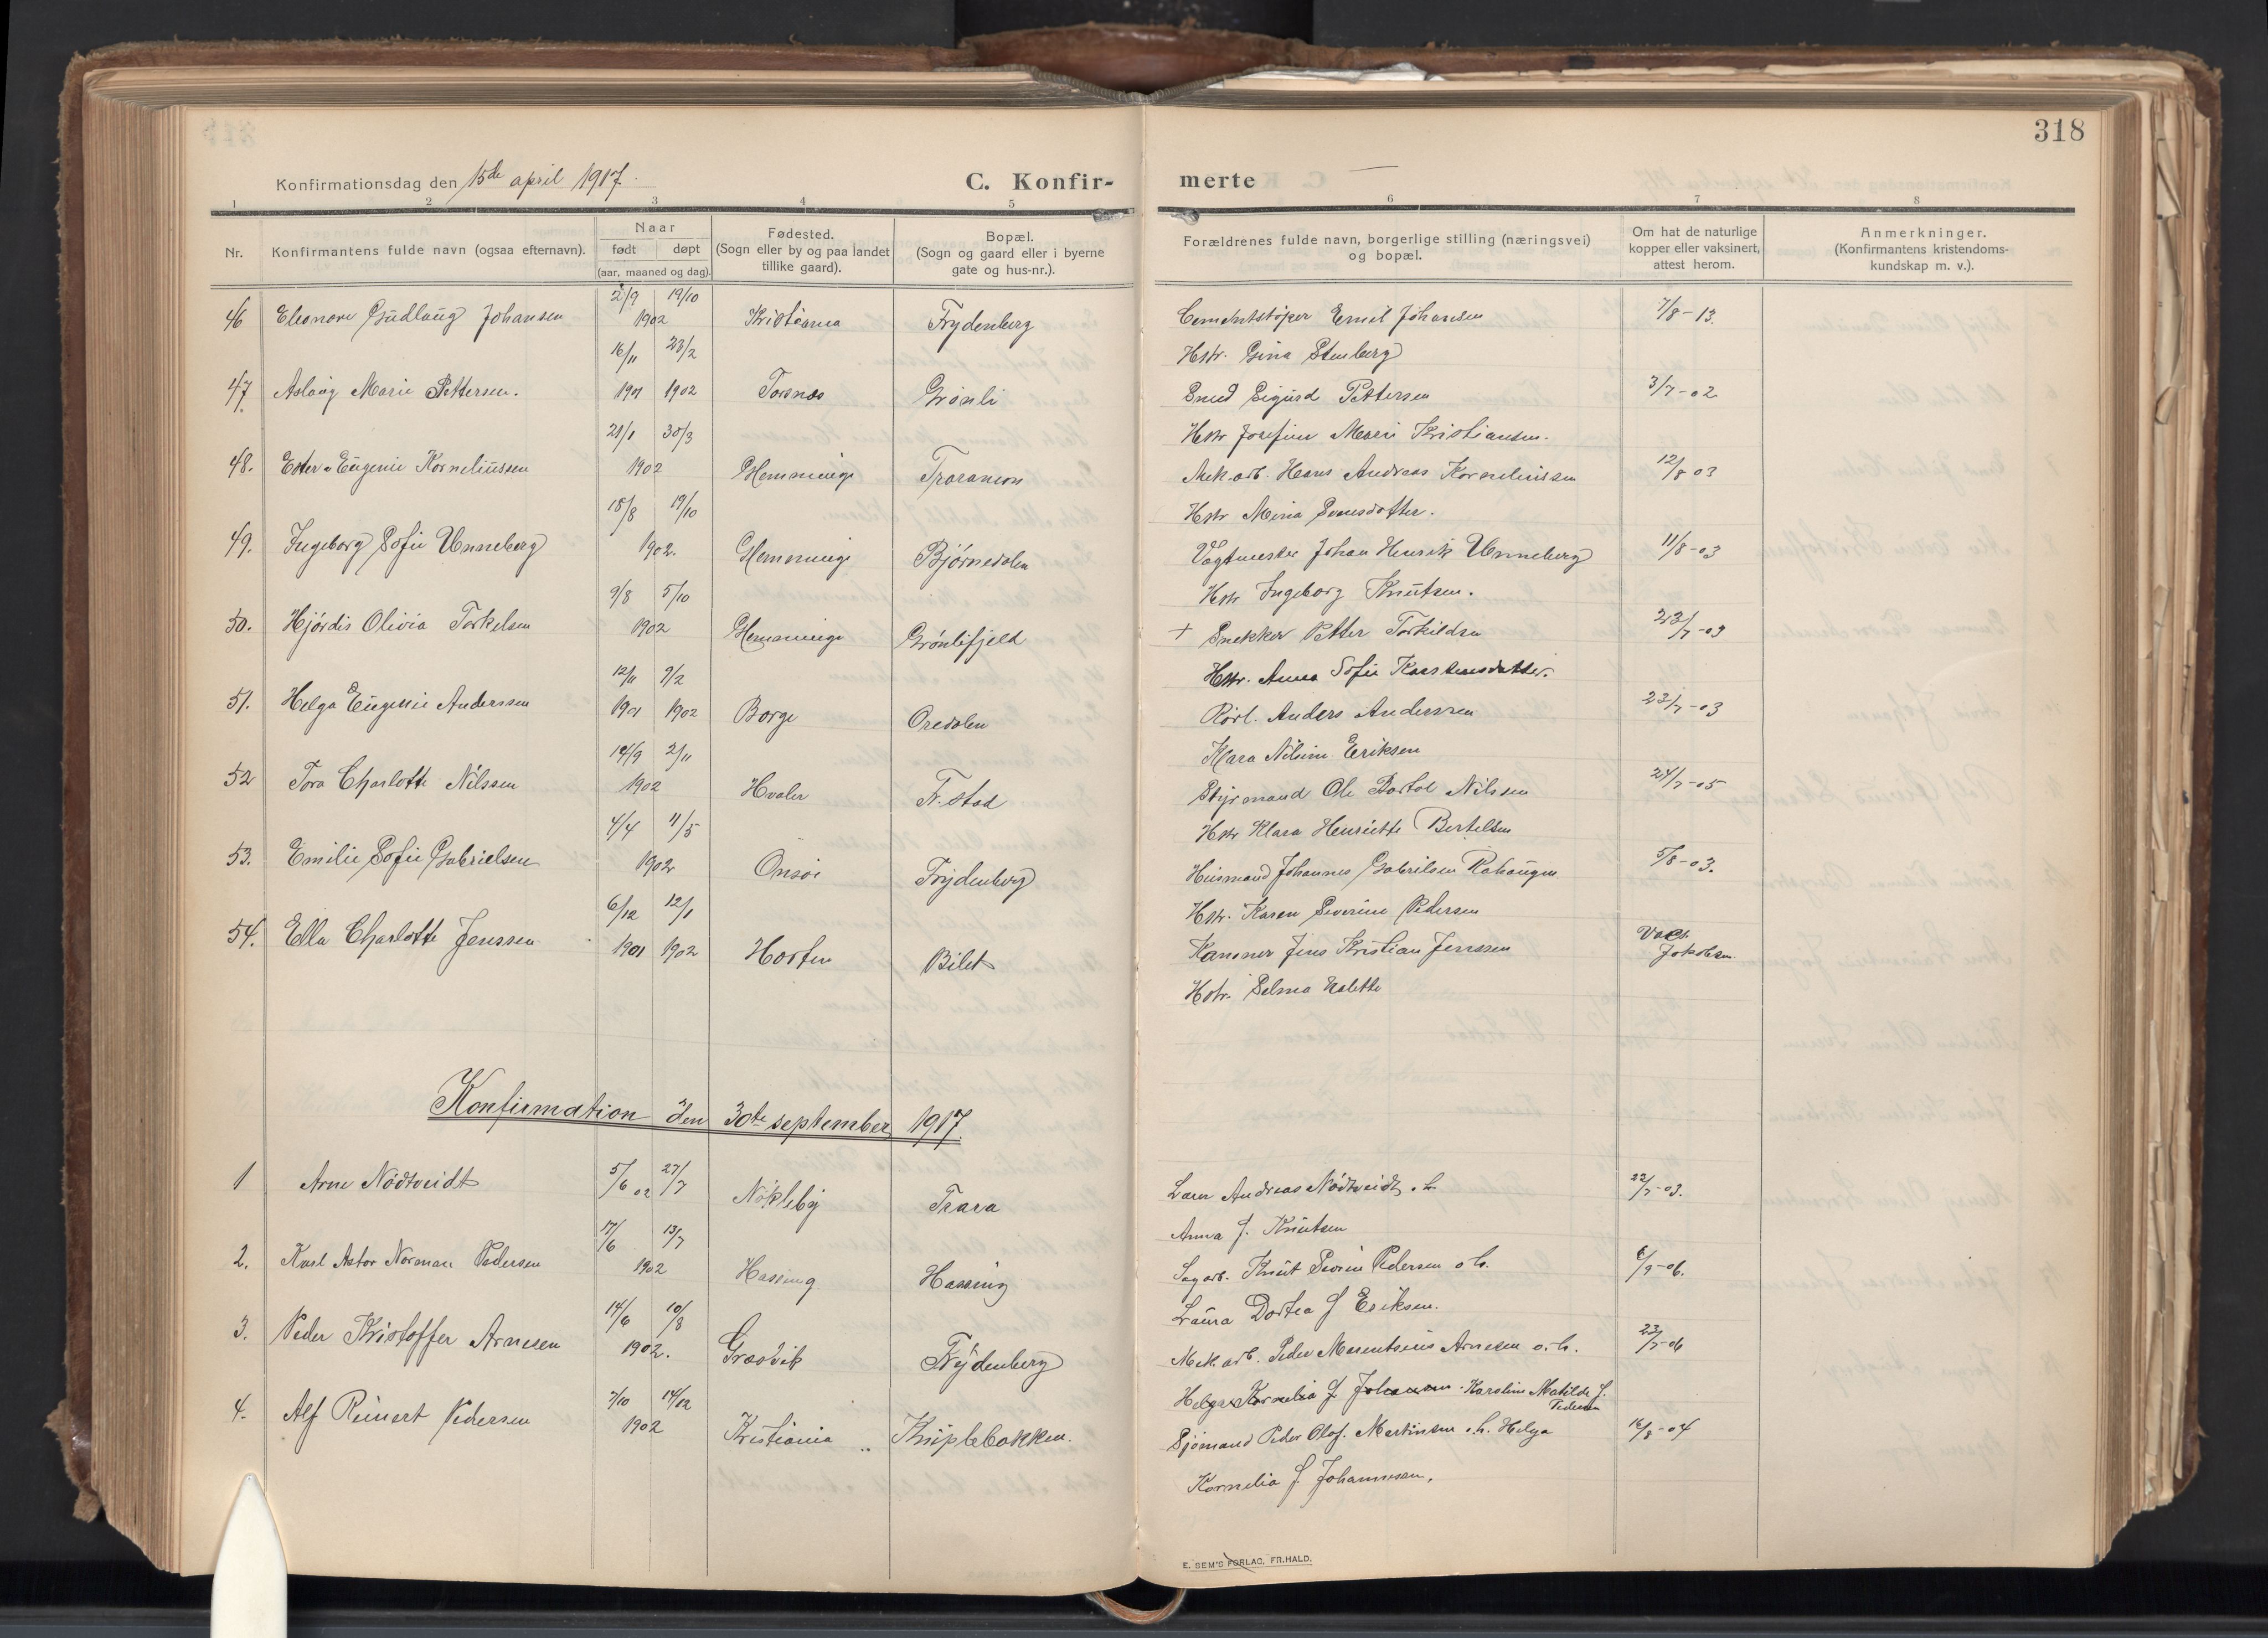 318
Konfirmationsdag den 15de april 1917.
C. Konfir-
merte
1 2 3 4 5 6 7 8
Nr.
Konfirmantens fulde navn (ogsaa efternavn).
Naar
født døpt
(aar, maaned og dag).
Fødested.
(Sogn eller by og paa landet
tillike gaard).
Bopæl.
(Sogn og gaard eller i byerne
gate og hus-nr.).
Forældrenes fulde navn, borgerlige stilling (næringsvei)
og bopæl.
Om hat de naturlige
kopper eller vaksinert,
attest herom.
Anmerkninger.
(Konfirmantens kristendoms-
kundskap m. v.).
2/9 19/10
46 Eleonore Gudlaug Johansen 1902 Kristiania Frydenberg Cementstøper Emil Johansen 7/8-13.
16/11 23/2 Hstr. Gina Stenberg
47. Aslaug Marie Pettersen. 1901 1902 Torsnes Grønli Smed Sigurd Pettersen 3/7-02
21/1 30/3 Hstr Josefine Marie Kristiansen.
48. Ester Eugenie Korneliussen 1902 Glemminge Traranem Mek. arb. Hans Andreas Korneliussen 12/8 03
18/8 19/10 Hstr Mina Svensdotter.
49. Ingeborg Sofie Unneberg 1902. Glemminge Bjørnedalen Vogtmester Johan Henrik Unneberg 11/8-03
9/8 5/10 Hstr Ingeborg Knutsen.
50. Hjørdis Olivia Torkelsen 1902 Glemminge Grønlifjeld + Snekker Petter Torkildsen 23/7-03
12/11 9/2 Hstr. Anna Sofie Karstensdatter.
51. Helga Eugenie Anderssen 1901 1902 Borge Oredalen Rørl. Anders Anderssen 23/7-03
14/9 2/11 Klara Nilsine Eriksen
52 Tora Charlotte Nilssen 1902 Hvaler Fr.stad Styrmand Ole Bartol Nilssen 24/7-05
4/4 11/5 Hstr Klara Henriette Bertelsen
53. Emilie Sofie Gabrielsen 1902 Onsøi Frydenberg Husmand Johannes Gabrilsen Rahaugen 5/8-03.
6/12 12/1 Hstr. Karen Severine Pedersen
54. Ella Charlotte Jenssen 1901 1902 Horten Bilet Kanoner Jens Kristian Jenssen Vacs. Jakobsen
Hstr. Selma Valette
Konfirmation den 30te september 1917.
1 Arne Nødtveidt 5/6 02 27/7 Nøkleby Trara Lærer Andreas Nødtveidt o. h. 22/7-03.
17/6 13/7 Anna J. Knutsen
2. Karl Astor Norman Pedersen 1902 Hassing Hassing Sagarb. Knut Severin Pedersen o. h. 6/9-06.
14/6 10/8 Laura Dortea J Eriksen.
3. Peder Kristoffer Arnesen 1902. Græsvik Frydenberg Mek arb. Peder Marentsius Arnesen o. h. 23/7-06
7/10 14/12 Helga Kornelia J Johansen. Karoline Matilde J. Pedersen
4. Alf Reinert Pedersen 1902 Kristiania Kniplebakken. Sjømand Peder Olaf. Martinsen o. h. Helga 16/8-04
Kornelia J. Johannesen.
E. SEM'S FORLAG, FR.HALD.